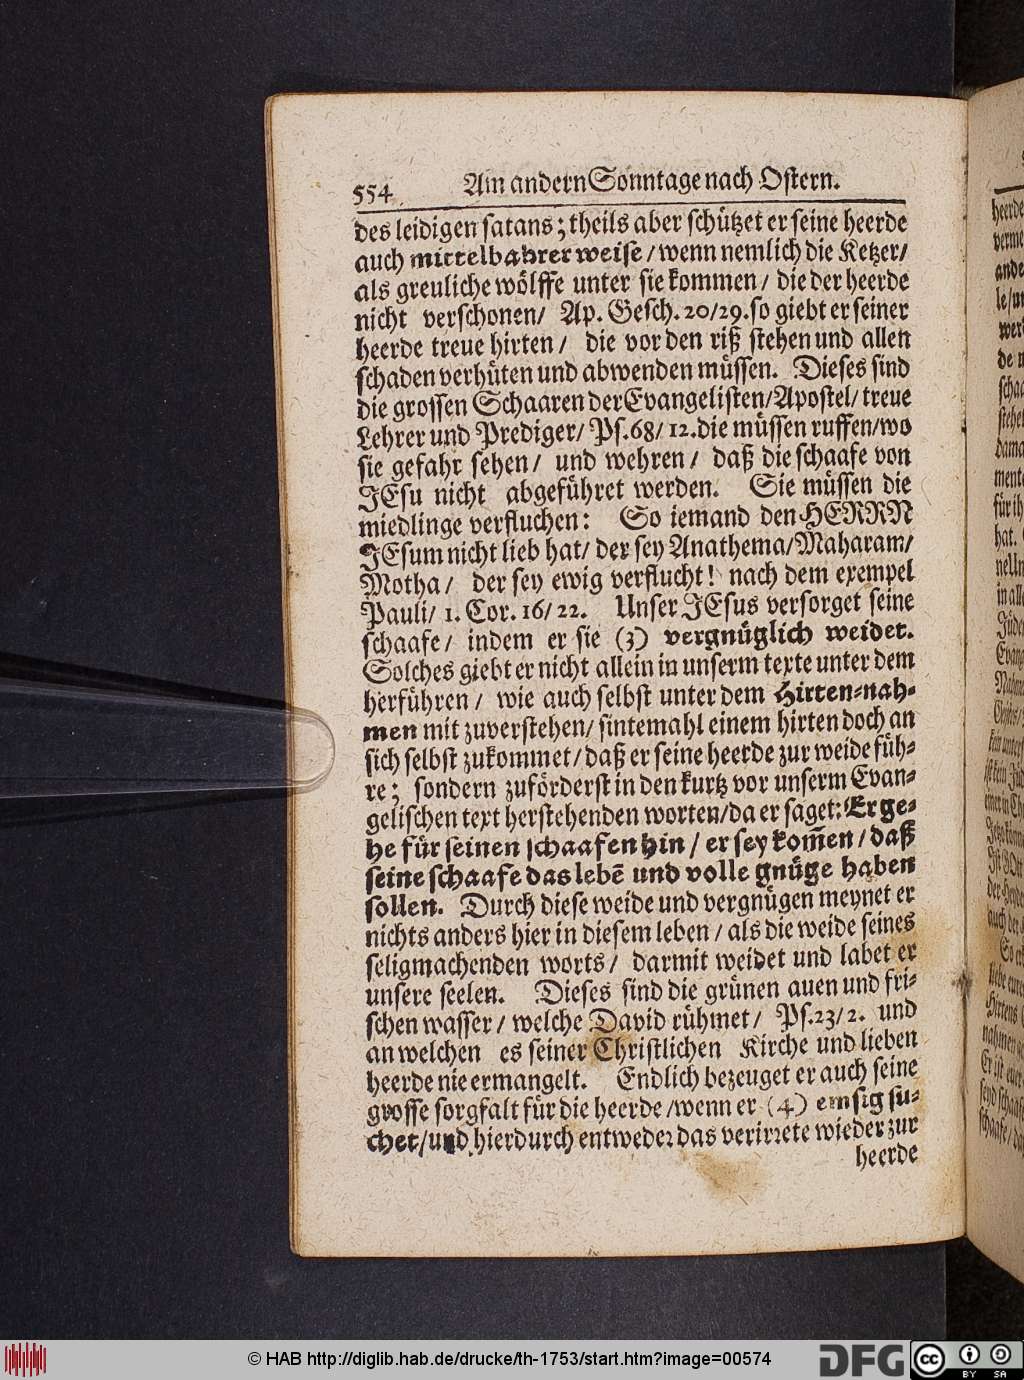 554 Am andern Sonntage nach Ostern.
des leidigen satans; theils aber schützet er seine heerde
auch mittelbahrer weise / wenn nemlich die Ketzer/
als greuliche wölffe unter sie kommen / die der heerde
nicht verschonen/ Ap. Gesch. 20/29. so giebt er seiner
heerde treue hirten / die vor den riß stehen und allen
schaden verhüten und abwenden müssen. Dieses sind
die grossen Schaaren der Evangelisten/Apostel/ treue
Lehrer und Prediger/ Ps. 68/ 12. die müssen ruffen/wo
sie gefahr sehen / und wehren / daß die schaafe von
JEsu nicht abgeführet werden. Sie müssen die
miedlinge verfluchen: So iemand den HERRN
JEsum nicht lieb hat/ der sey Anathema/Maharam/
Motha / der sey ewig verflucht! nach dem exempel
Pauli/ 1. Cor. 16/ 22. Unser JEsus versorget seine
schaafe / indem er sie (3) vergnüglich weidet.
Solches giebt er nicht allein in unserm texte unter dem
herführen / wie auch selbst unter dem Hirten-nah-
men mit zuverstehen/ sintemahl einem hirten doch an
sich selbst zukommet/ daß er seine heerde zur weide füh-
re; sondern zuförderst in den kurtz vor unserm Evan-
gelischen text herstehenden worten/da er saget: Er ge-
he für seinen schaafen hin / er sey kom̃en / daß
seine schaafe das lebẽ und volle gnüge haben
sollen. Durch diese weide und vergnügen meynet er
nichts anders hier in diesem leben / als die weide seines
seligmachenden worts / darmit weidet und labet er
unsere seelen. Dieses sind die grünen auen und fri-
schen wasser / welche David rühmet / Ps. 23/ 2. und
an welchen es seiner Christlichen Kirche und lieben
heerde nie ermangelt. Endlich bezeuget er auch seine
grosse sorgfalt für die heerde / wenn er (4) emsig su-
chet/ und hierdurch entweder das verirrete wieder zur
heerde
© HAB http://diglib.hab.de/drucke/th-1753/start.htm?image=00574
DFG
cc BY SA